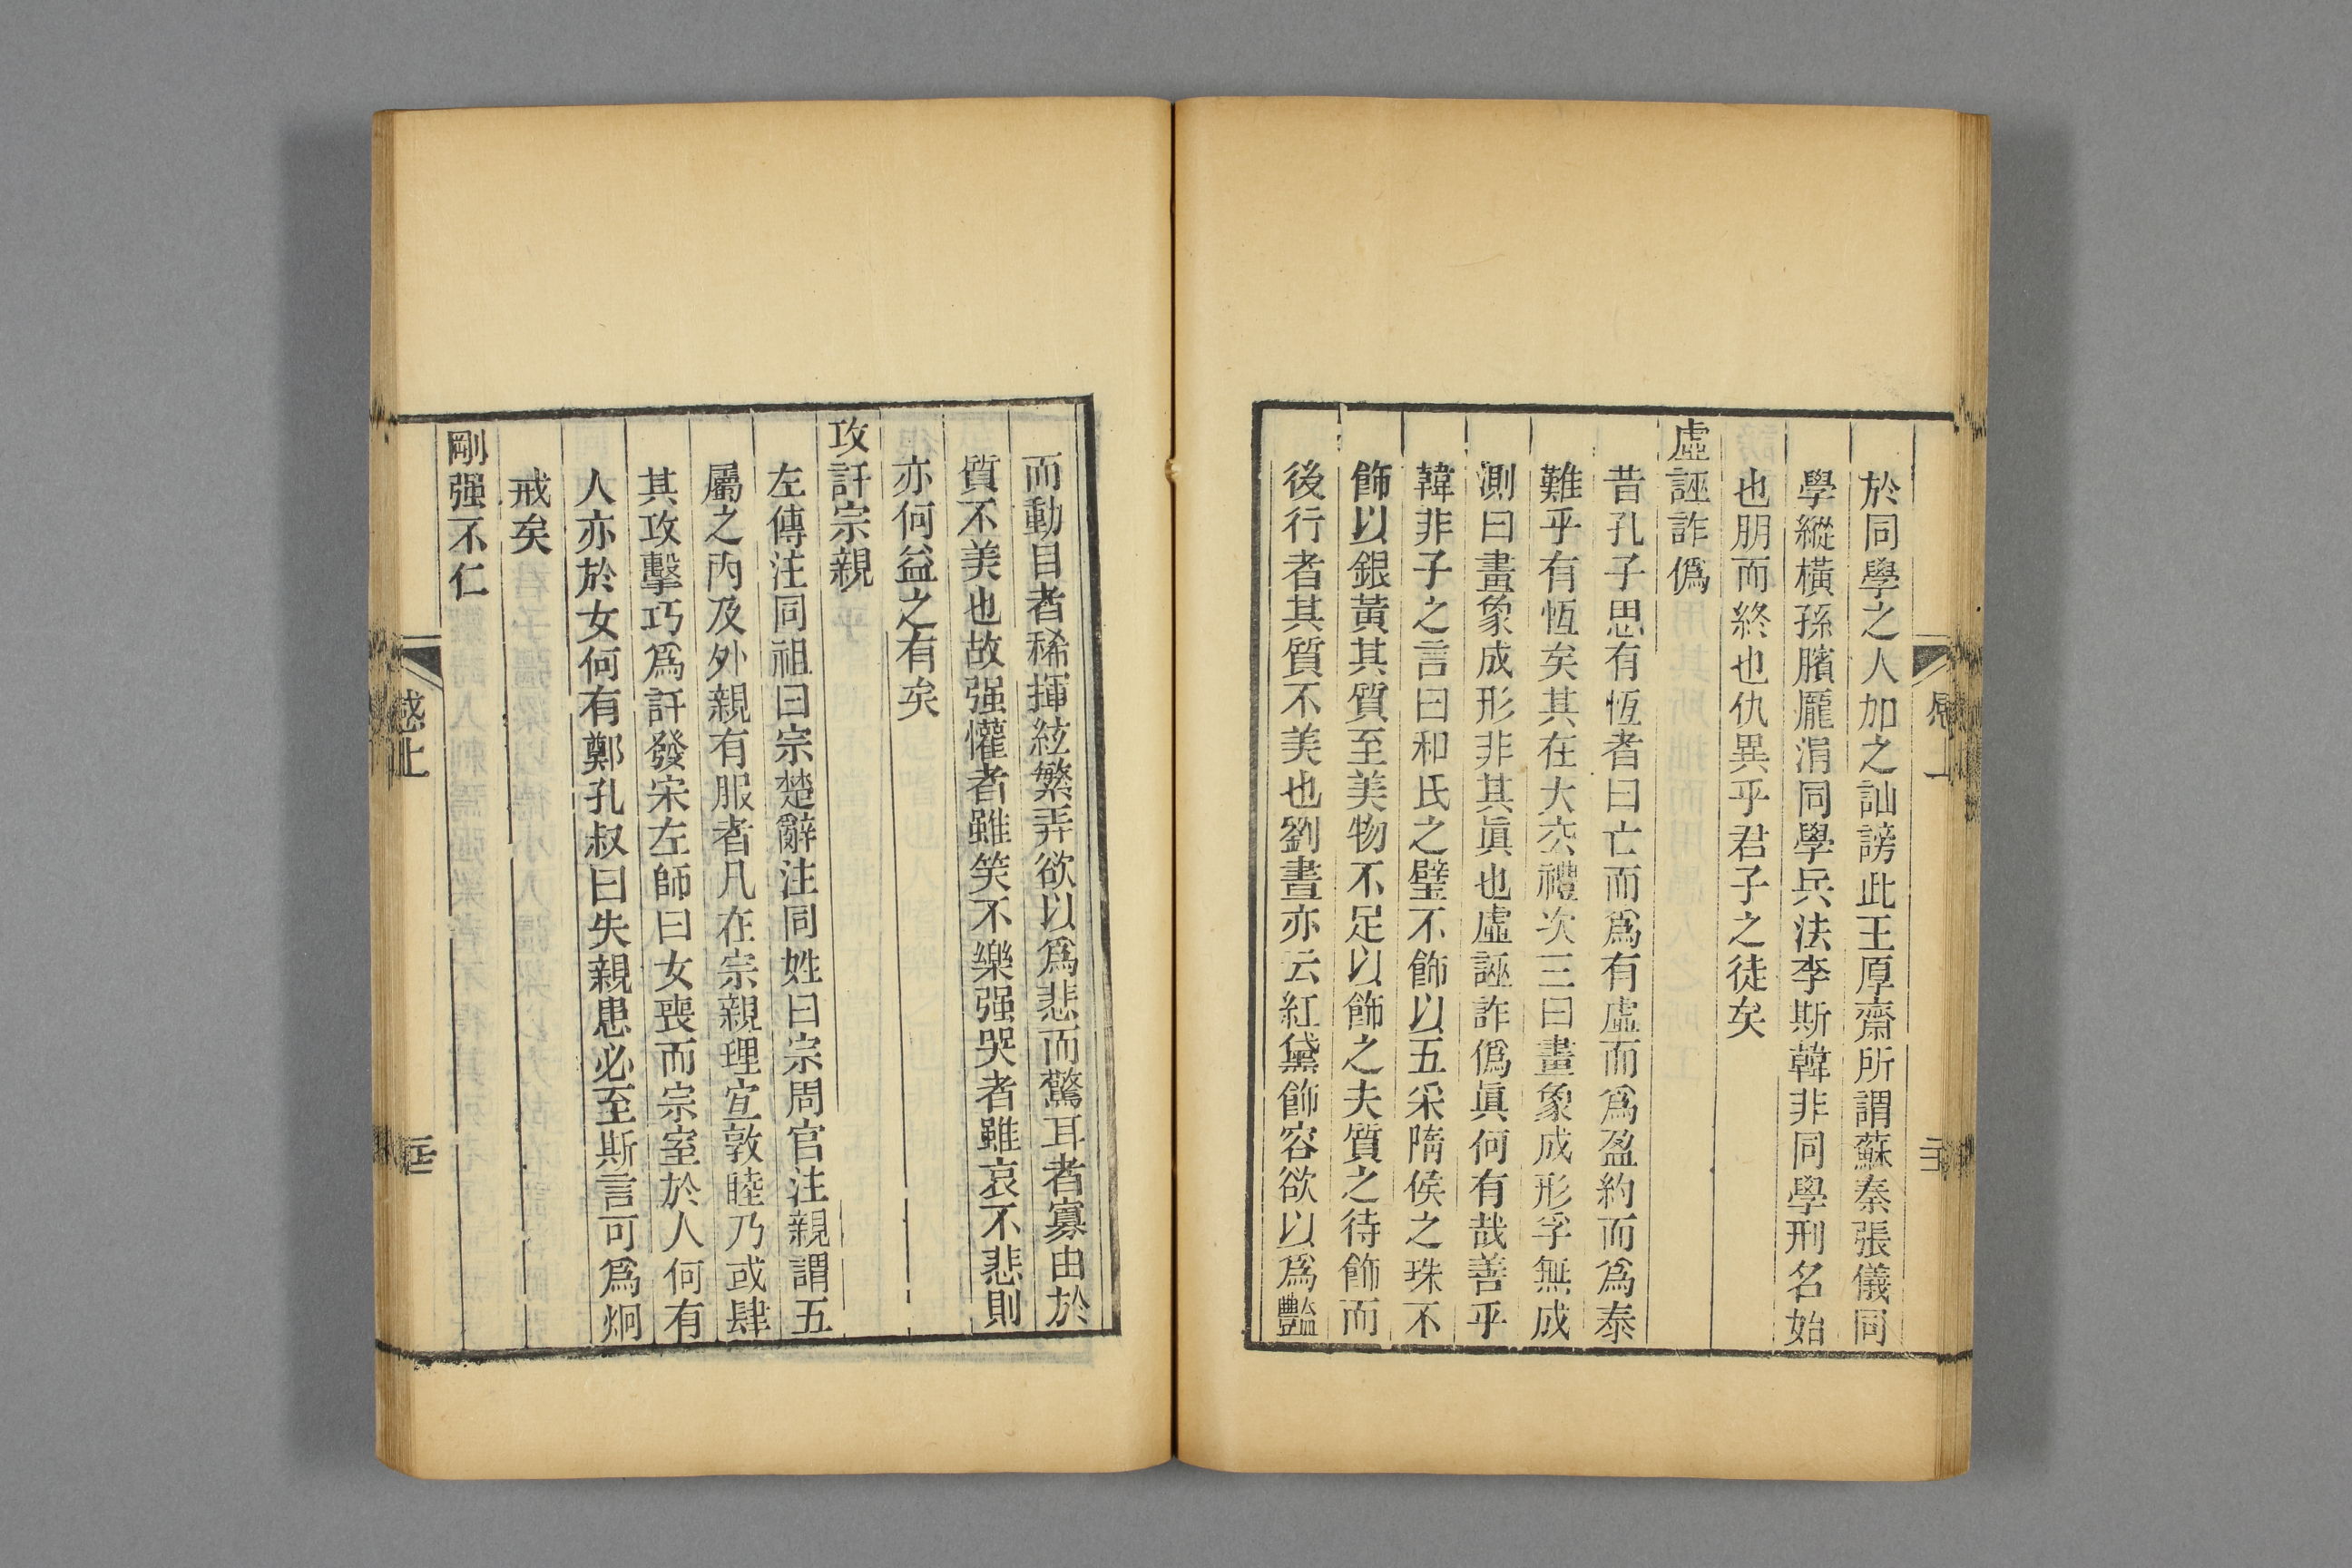 於同學之人加之訕謗此王厚齋所謂蘇秦張儀同
學縱橫孫臏龐涓同學兵法李斯韓非同學刑名始
也朋而終也仇異乎君子之徒矣
虛誣詐僞
昔孔子思有恆者曰亡而爲有虛而爲盈約而爲泰
難乎有恆矣其在大玄禮次三曰畫象成形孚無成
測曰畫象成形非其眞也虛誣詐僞眞何有哉善乎
韓非子之言曰和氏之璧不飾以五采隋侯之珠不
飾以銀黃其質至美物不足以飾之夫質之待飾而
後行者其質不美也劉晝亦云紅黛飾容欲以爲豔
而動目者稀揮絃繁弄欲以爲悲而驚耳者寡由於
質不美也故强懽者雖笑不樂强哭者雖哀不悲則
亦何益之有矣
攻訐宗親
左傳注同祖曰宗楚辭注同姓曰宗周官注親謂五
屬之內及外親有服者凡在宗親理宜敦睦乃或肆
其攻擊巧爲訐發宋左師曰女喪而宗室於人何有
人亦於女何有鄭孔叔曰失親患必至斯言可爲炯
戒矣
剛强不仁
感上